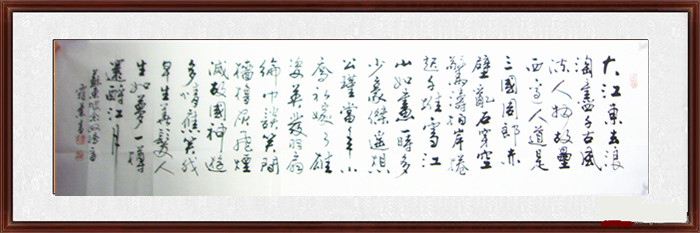 大江東去浪
淘盡千古風
流人物故壘
西邊人道是
三國周郎赤
壁亂石穿空
驚濤拍岸捲
起千堆雪江
山如畫一時多
少豪傑遙想
公瑾當年小
喬初嫁了雄
姿英發羽扇
綸巾談笑間
檣櫓灰飛煙
滅故國神遊
多情應笑我
早生華髮人
生如夢一樽
還酹江月
蘇東坡